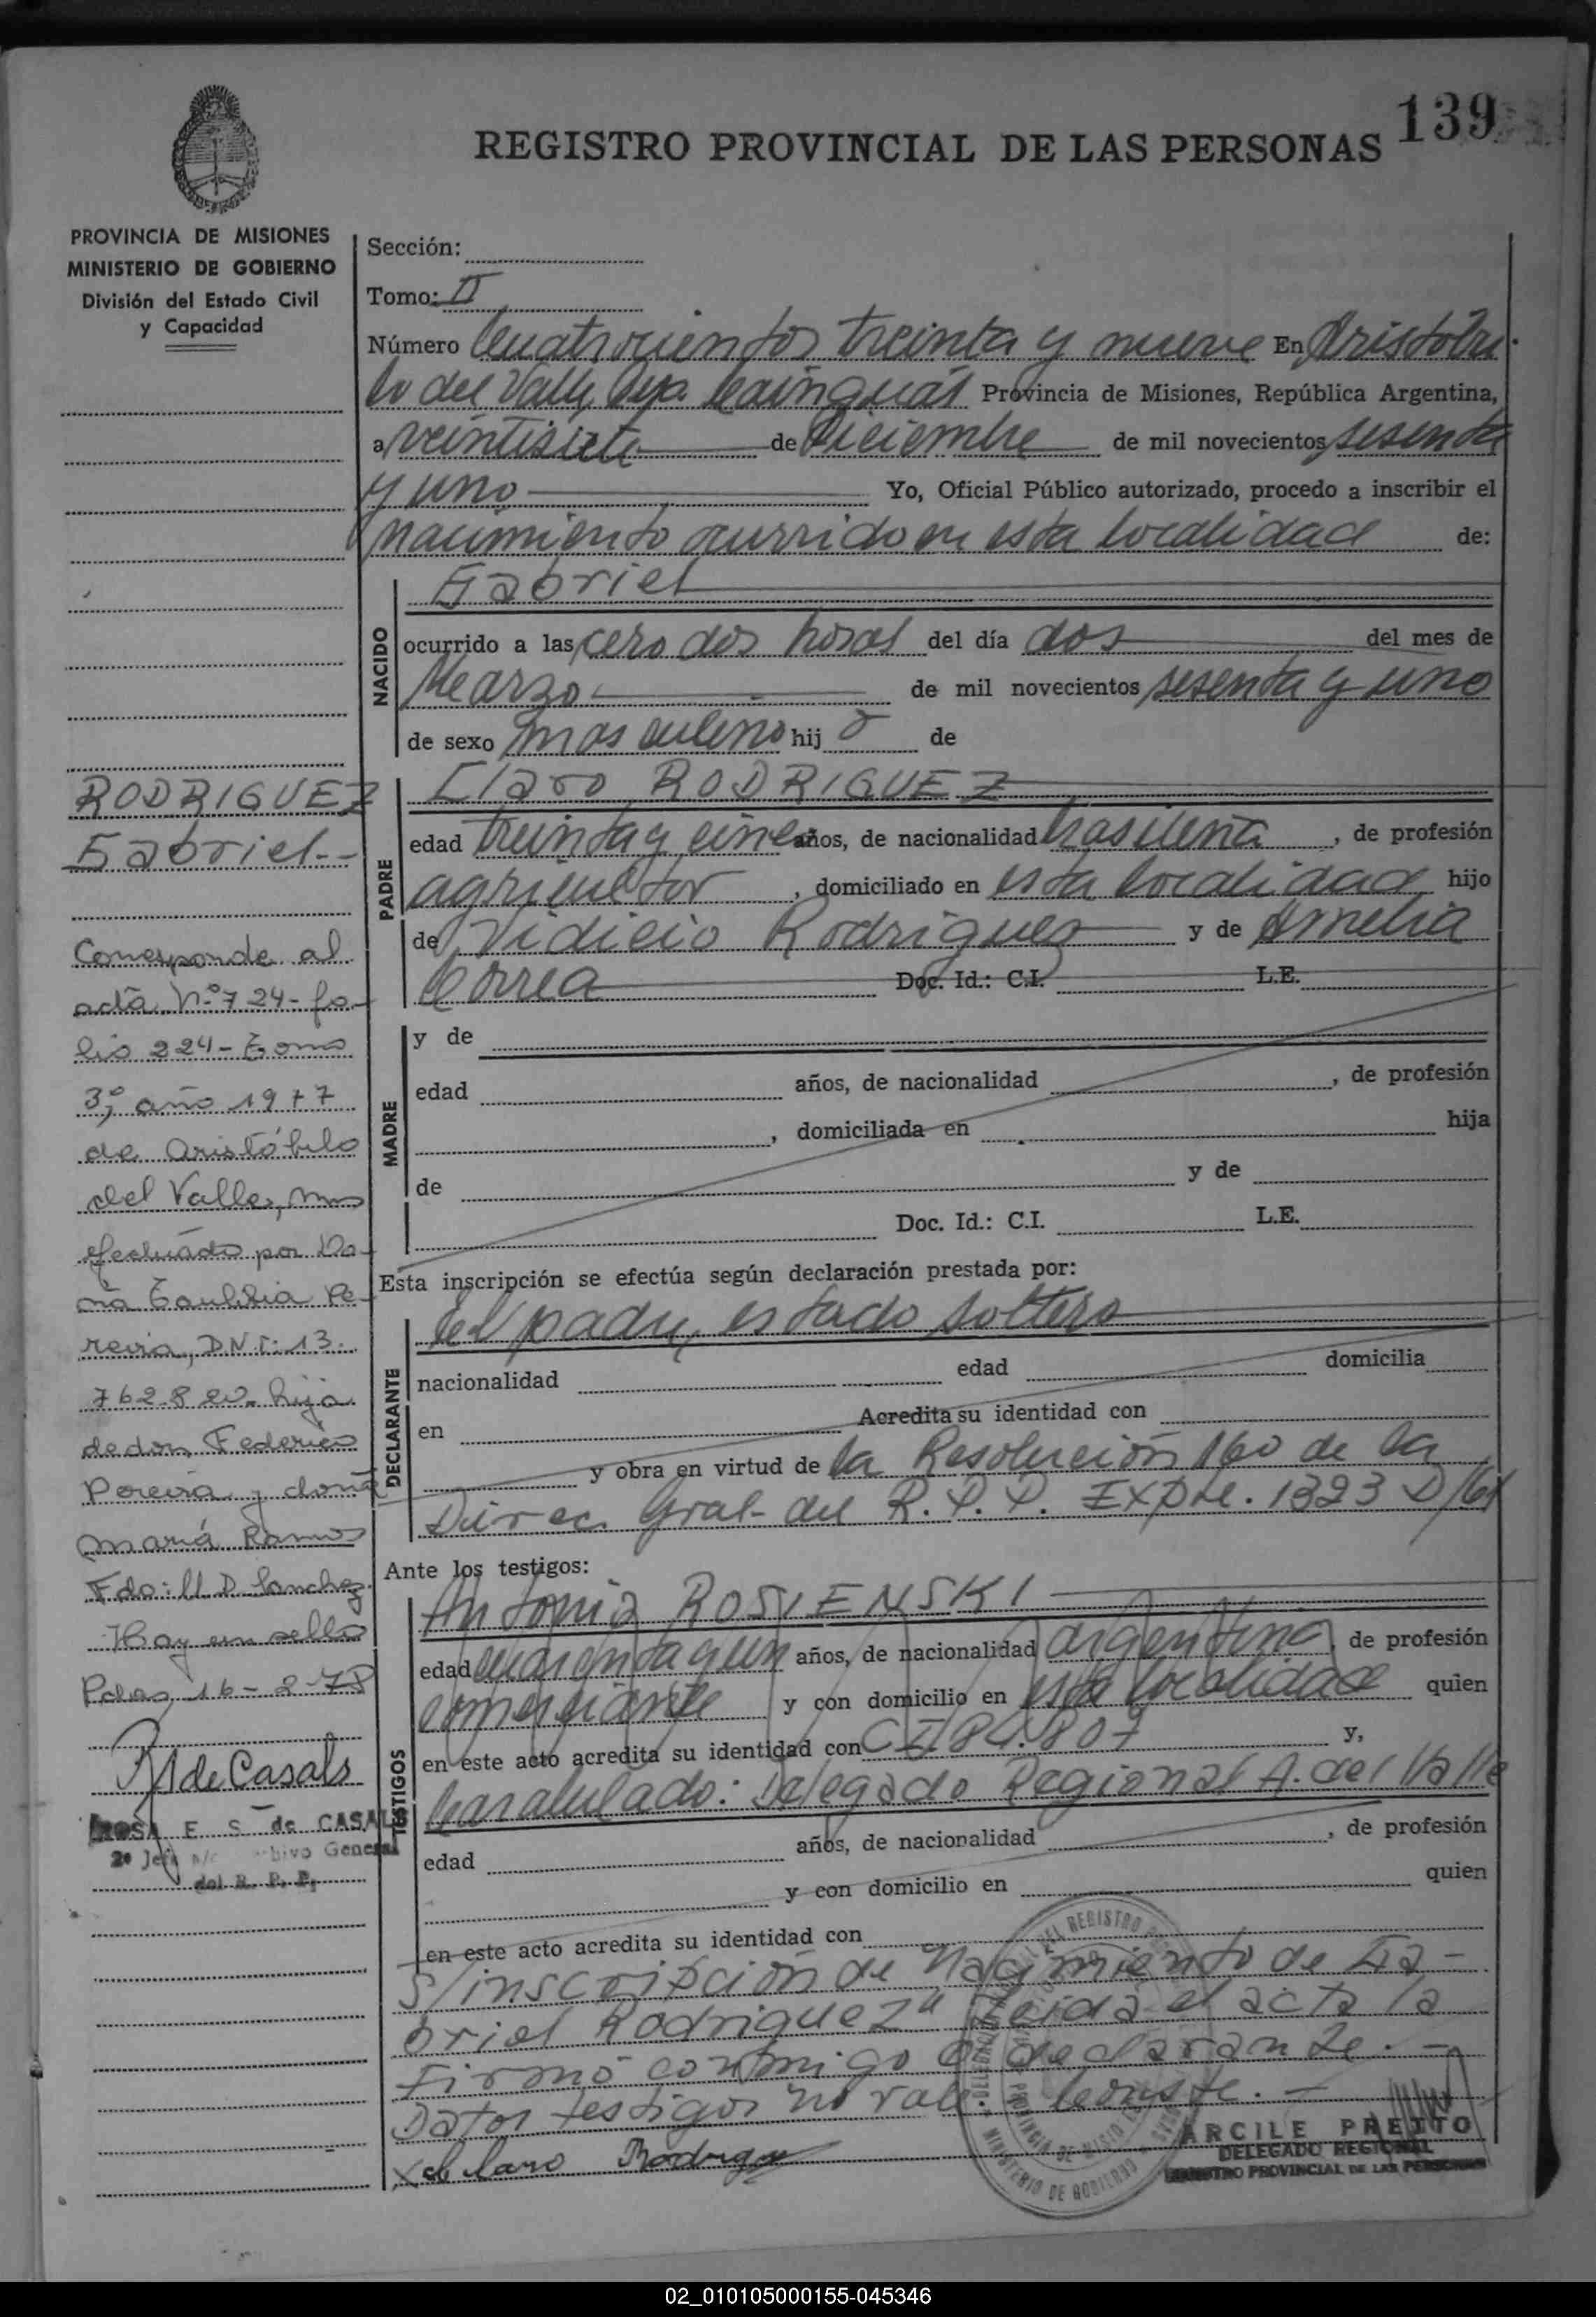 139
REGISTRO PROVINCIAL DE LAS PERSONAS
PROVINCIA DE MISIONES
MINISTERIO DE GOBIERNO
División del Estado Civil
y Capacidad
Sección:
Tomo: II
Número Cuatrocientos treinta y nueve En Aristóbu-
lo del Valle, Dpa. Cainguás Provincia de Misiones, República Argentina,
a veintisiete de Diciembre de mil novecientos sesenta
y uno Yo, Oficial Público autorizado, procedo a inscribir el
nacimiento ocurrido en esta localidad de:
NACIDO
Gabriel
ocurrido a las cero dos horas del día dos del mes de
Marzo de mil novecientos sesenta y uno
de sexo masculino hij o de
PADRE
Claro RODRIGUEZ
edad treinta y cinco años, de nacionalidad brasileña, de profesión
agricultor, domiciliado en esta localidad hijo
de Vidicio Rodriguez y de Amelia
Correa Doc. Id.: C.I. L.E.
MADRE
y de
edad años, de nacionalidad , de profesión
, domiciliada en hija
de y de
Doc. Id.: C.I. L.E.
Esta inscripción se efectúa según declaración prestada por:
DECLARANTE
El padre, estado soltero
nacionalidad edad domicilia
en Acredita su identidad con
y obra en virtud de la Resolución 160 de la
Direc. Gral. del R.P.P. Expte. 1323 D/61
Ante los testigos:
TESTIGOS
Antonia ROSVENSKI
edad cuarenta y un años, de nacionalidad argentina, de profesión
comerciante y con domicilio en esta localidad quien
en este acto acredita su identidad con CI 84.807 y,
Caratulado: Delegado Regional A. del Valle
edad años, de nacionalidad , de profesión
y con domicilio en quien
en este acto acredita su identidad con
S/inscripción de Nacimiento de Ga-
briel Rodriguez" Leida el acta la
Firmó conmigo el declarante. -
Datos testigos no vale: Conste. -
x Claro Rodrigue
ARCILE PREITO
DELEGADO REGIONAL
REGISTRO PROVINCIAL DE LAS PERSONAS
RODRIGUEZ
Gabriel--
Corresponde al
acta Nº 724-fo-
lio 224-Tomo
3º, año 1977
de Aristóbulo
del Valle, Mns
efectuado por Do-
ña Eaulalia Pe-
reira, D.N.I: 13.
762.820. hija
de don Federico
Pereira y doña
María Ramos
Fdo: M. D. Sanchez
Hay un sello
Pdas, 16-2-78
R de Casals
ROSA E. S. de CASALS
2º Jefe a/c Archivo General
del R. P. P.
02_010105000155-045346